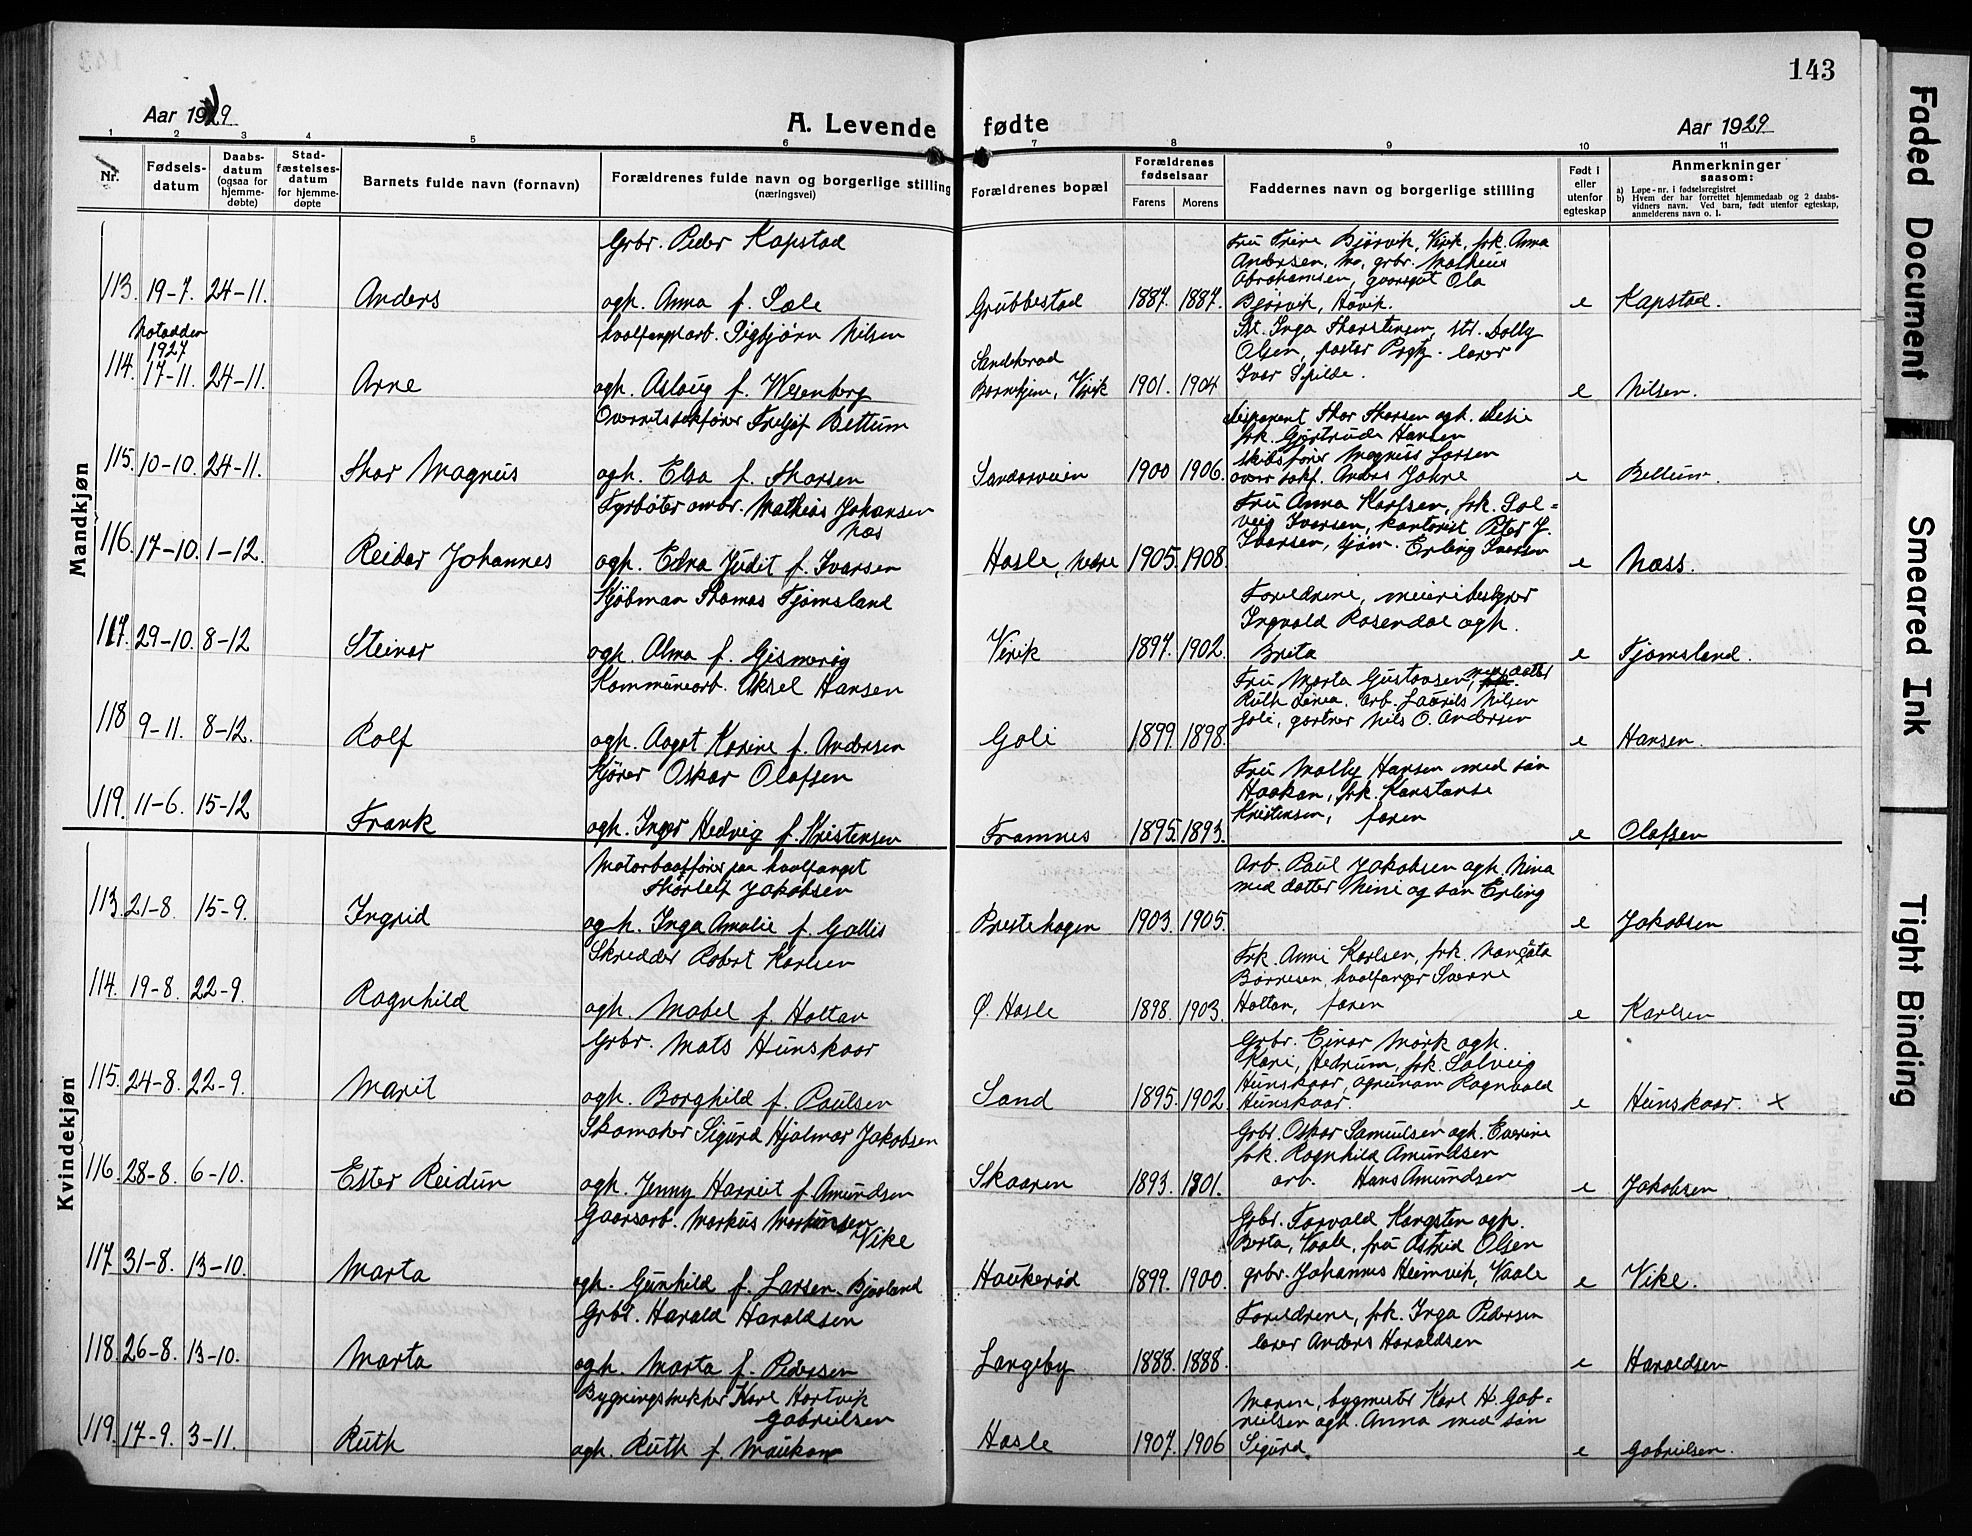 143
Aar 1929
A. Levende fødte
Aar 1929
1 2 3 4 5 6 7 8 9 10 11
Nr.
Fødsels-datum
Daabs-datum (ogsaa for hjemme-døbte)
Stad-fæstelses-datum for hjemme-døpte
Barnets fulde navn (fornavn)
Forældrenes fulde navn og borgerlige stilling (næringsvei)
Forældrenes bopæl
Forældrenes fødselsaar
Farens Morens
Faddernes navn og borgerlige stilling
Født i eller utenfor egteskap
Anmerkninger saasom:
a) Løpe-nr. i fødselsregistret
b) Hvem der har forrettet hjemmedaab og 2 daabs-vidners navn. Ved barn, født utenfor egteskap, anmelderens navn o. l.
Mandkjøn
Grbr. Peder Kapstad
113. 19-7. 24-11. Anders
ogh. Anna f. Sole
Grubbestad 1887. 1887.
Fru Trine Bjørvik, Virik, frk. Anna
Andersen, grbr. Mathius
Abrahamsen, Ola
Bjørvik, Høvik.
e Kapstad.
Notodden
1927
hvalfangstarb. Sigbjørn Nilsen
114. 17-11. 24-11. Arne
ogh. Aslaug f. Wesenberg
Sandeherad
Barnehjem, Virik 1901. 1904
Inga Thorstensen, Dolly
Olsen, pastor lærer
Ivar Schilde.
e Nilsen.
Overretssakfører Fritjof Bettum
115. 10-10. 24-11. Thor Magnus
ogh. Elsa f. Thorsen
Sandarveien 1900 1906.
Disponent Thor Thorsen ogh.
frk. Gjertrude Hansen
skibsfører Magnus Larsen
over sakf. Anders Jahre
e Bettum.
Fyrbøter ombr. Mathias Johansen
Næs
116. 17-10. 1-12. Reidar Johannes
ogh. Edna Judit f. Ivarsen
Hasle, nedre 1905. 1908.
Fru Anna Karlsen, frk. Sol=
veig Ivarsen, kontorist Peter J.
Ivarsen, sjøm. Erling Ivarsen
e Næss.
Kjøbman Thomas Fjømsland
117. 29-10. 8-12 Steinar
ogh. Alma f. Gismerøg
Virik 1897. 1902.
Forældrene, meieribestyrer
Ingvald Rosendal ogh.
Brita
e Fjømsland.
Kommunearb. Aksel Hansen
118 9-11. 8-12. Rolf
ogh. Aagot Karine f. Andersen
Goli 1899. 1898.
Fru Marta Gustavsen, med datter
Ruth Linea, arb. Laurits Nilsen
Goli, gartner Nils O. Andersen
e Hansen.
Kjører Oskar Olafsen
119. 11-6. 15-12 Frank
ogh. Inger Hedvig f. Kristensen
Framnes 1895. 1893.
Fru Molly Hansen med søn
Haakon, frk. Konstanse
Kristensen, faren
e Olafsen
Kvindekjøn
Motorbaatfører paa hvalfanget
Thorleif Jakobsen
113. 21-8. 15-9. Ingrid
ogh. Inga Amalie f. Gallis
Prestehagen 1903. 1905.
Arb. Paul Jakobsen ogh. Nina
med datter Nini og søn Erling
e Jakobsen
Skredder Robert Karlsen
114. 19-8. 22-9. Ragnhild
ogh. Mabel f. Holtan
Ø. Hasle 1898. 1903.
Frk. Anni Karlsen, frk.
Børresen, hvalfanger Sverre
Holtan, faren
e Karlsen
Grbr. Mats Hunskaar
115. 24-8. 22-9. Marit
ogh. Borghild f. Paulsen
Sand 1895. 1902.
Grbr. Einar Mørk ogh.
Kari, Hedrum, frk. Solveig
Hunskaar, agrunom Ragnvald
Hunskaar.
e Hunskaar. x
Skomaker Sigurd Hjalmar Jakobsen
116. 28-8. 6-10. Ester Reidun
ogh. Jenny Harriet f. Amundsen
Skaaren 1893. 1901.
Grbr. Oskar Samuelsen ogh. Everine
frk. Ragnhild Amundsen
arb. Hans Amundsen
e Jakobsen.
Gaardsarb. Markus Martinsen
Vike
117. 31-8. 13-10. Marta
ogh. Gunhild f. Larsen Bjøvland
Haukerød 1899. 1900.
Grbr. Torvald Kongsten ogh.
Berta, Vaale, fru Astrid Olsen
grbr. Johannes Heimvik, Vaale
e Vike.
Grbr. Harald Haraldsen
118. 26-8. 13-10. Marta
ogh. Marta f. Pedersen
Langeby 1888. 1888.
Forældrene, frk. Inga Pedersen
lærer Anders Haraldsen
e Haraldsen
Bygningssnekker Karl Hartvik
Gabrielsen
119. 17-9. 3-11. Ruth
ogh. Ruth f. Maukon
Hasle 1907. 1906
Moren, bygmester Karl H. Gab=
rielsen ogh. Anna med søn
Sigurd.
e Gabrielsen.
Faded Document
Smeared Ink
Tight Binding